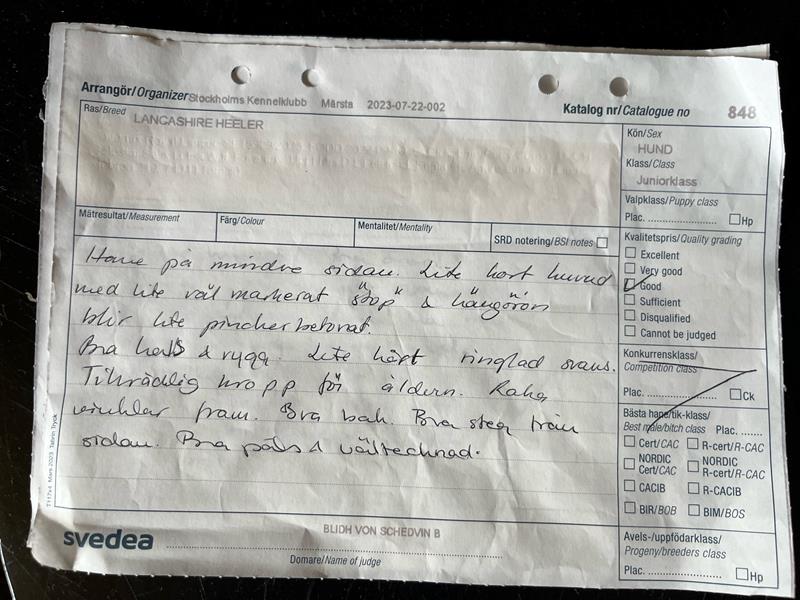 Arrangör/Organizer Stockholms Kennelklubb Märsta 2023-07-22-002
Katalog nr/Catalogue no 848
Ras/Breed LANCASHIRE HEELER
Kön/Sex
HUND
Klass/Class
Juniorklass
Valpklass/Puppy class
Plac. .................... Hp
Mätresultat/Measurement
Färg/Colour
Mentalitet/Mentality
SRD notering/BSI notes
Hane på mindre sidan. Lite kort huvud
med lite väl markerat "stop" & hängöron
blir lite pincherbetonat.
Bra hals & rygg. Lite hårt ringlad svans.
Tillräcklig kropp för åldern. Raka
vinklar fram. Bra bak. Bra steg från
sidan. Bra päls & vältecknad.
Kvalitetspris/Quality grading
Excellent
Very good
Good
Sufficient
Disqualified
Cannot be judged
Konkurrensklass/
Competition class
Plac. .................... Ck
Bästa han/tik-klass/
Best male/bitch class Plac. ......
Cert/CAC R-cert/R-CAC
NORDIC Cert/CAC NORDIC R-cert/R-CAC
CACIB R-CACIB
BIR/BOB BIM/BOS
Avels-/uppfödarklass/
Progeny/breeders class
Plac. .................... Hp
T117x4 Mars 2023 Tabrin Tryck
svedea
BLIDH VON SCHEDVIN B
Domare/Name of judge